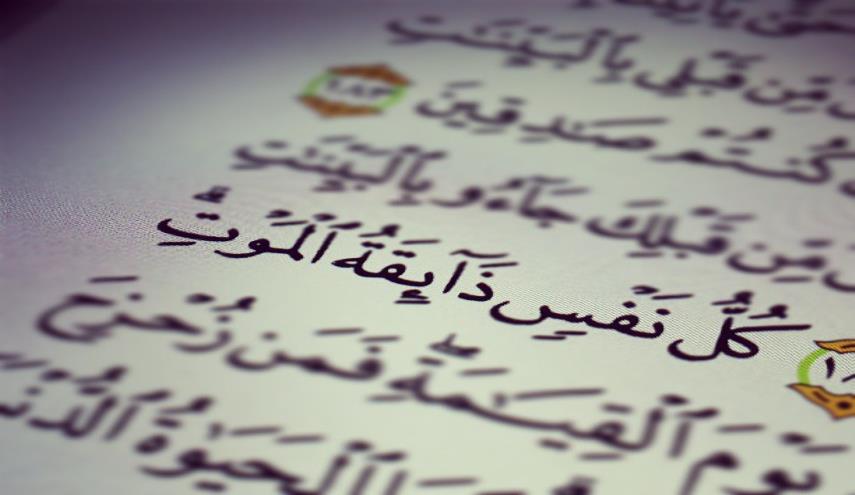 مِّن قَبْلِى بِٱلْبَيِّنَٰتِ
كُنتُمْ صَٰدِقِينَ ١٨٣
مِّن قَبْلِكَ جَآءُو بِٱلْبَيِّنَٰتِ
كُلُّ نَفْسٍ ذَآئِقَةُ ٱلْمَوْتِ ۗ
يَوْمَ ٱلْقِيَٰمَةِ ۖ فَمَن زُحْزِحَ
ٱلْحَيَوٰةُ ٱلدُّنْ